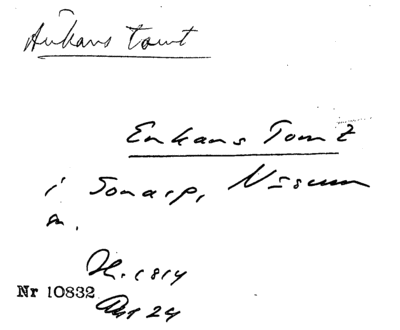 Änkans tomt
Enkans Tomt
i Sonarp, Nissum
sn.
Nr 10832
Akt 24